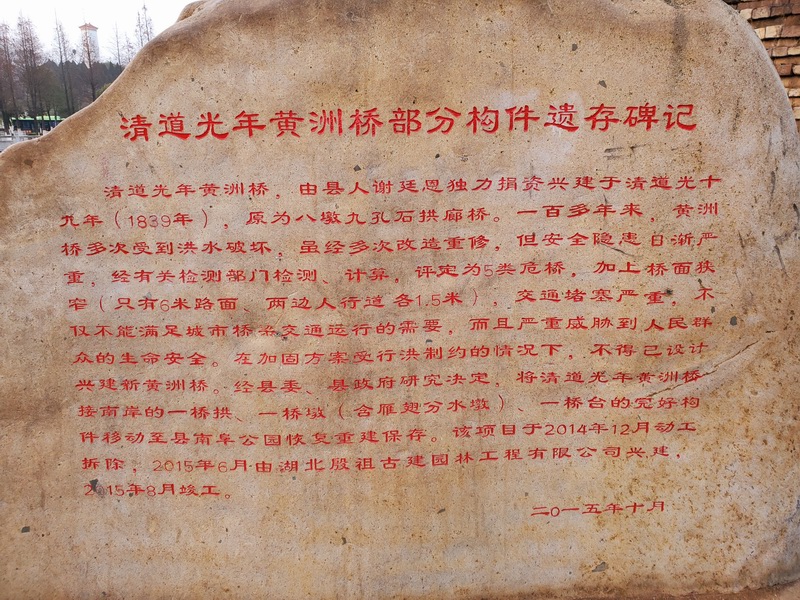 清道光年黄洲桥部分构件遗存碑记
清道光年黄洲桥，由县人谢廷恩独力捐资兴建于清道光十
九年（1839年），原为八墩九孔石拱廊桥。一百多年来，黄洲
桥多次受到洪水破坏，虽经多次改造重修，但安全隐患日渐严
重，经有关检测部门检测、计算，评定为5类危桥，加上桥面狭
窄（只有6米路面、两边人行道各1.5米），交通堵塞严重，不
仅不能满足城市桥名交通运行的需要，而且严重威胁到人民群
众的生命安全。在加固方案受行洪制约的情况下，不得已设计
兴建新黄洲桥。经县委、县政府研究决定，将清道光年黄洲桥
接南岸的一桥拱、一桥墩（含雁翅分水墩）、一桥台的完好构
件移动至县南阜公园恢复重建保存。该项目于2014年12月动工
拆除，2015年6月由湖北殷祖古建园林工程有限公司兴建，
2015年8月竣工。
二〇一五年十月